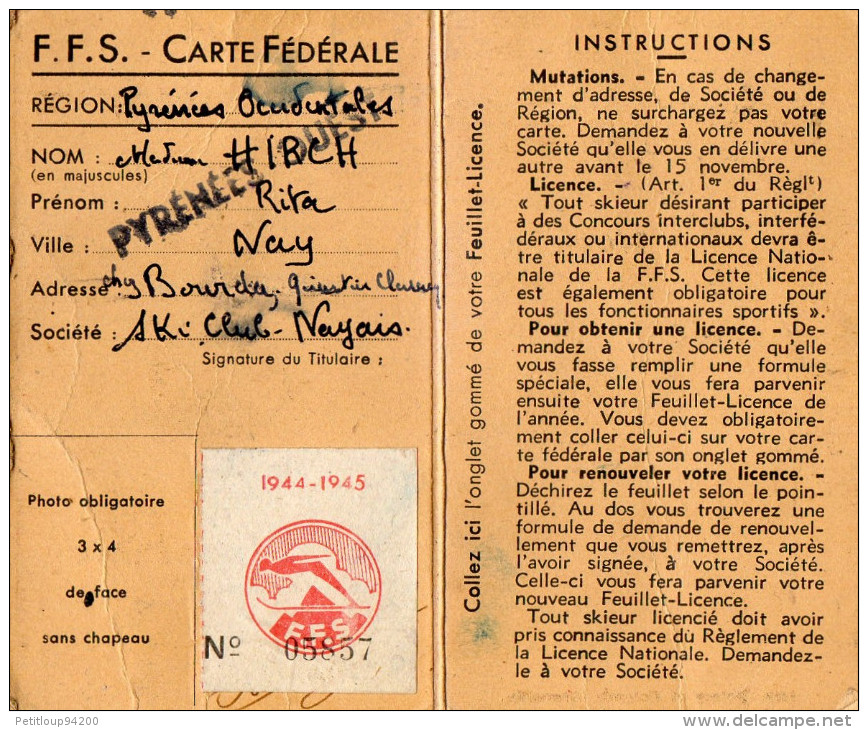 F.F.S. - CARTE FÉDÉRALE
RÉGION: Pyrénées Occidentales
PYRÉNÉES OUEST
NOM : HIRCH
(en majuscules)
Prénom : Rita
Ville : Nay
Adresse chez Bourda,
Société : Ski Club-Nayais.
Signature du Titulaire :
Photo obligatoire
3 x 4
de face
sans chapeau
1944-1945
F.F.S
Nº 05857
Collez ici l'onglet gommé de votre Feuillet-Licence.
INSTRUCTIONS
Mutations. - En cas de change-
ment d'adresse, de Société ou de
Région, ne surchargez pas votre
carte. Demandez à votre nouvelle
Société qu'elle vous en délivre une
autre avant le 15 novembre.
Licence. - (Art. 1er du Règlt)
« Tout skieur désirant participer
à des Concours interclubs, interfé-
déraux ou internationaux devra ê-
tre titulaire de la Licence Natio-
nale de la F.F.S. Cette licence
est également obligatoire pour
tous les fonctionnaires sportifs ».
Pour obtenir une licence. - De-
mandez à votre Société qu'elle
vous fasse remplir une formule
spéciale, elle vous fera parvenir
ensuite votre Feuillet-Licence de
l'année. Vous devez obligatoire-
ment coller celui-ci sur votre car-
te fédérale par son onglet gommé.
Pour renouveler votre licence. -
Déchirez le feuillet selon le poin-
tillé. Au dos vous trouverez une
formule de demande de renouvel-
lement que vous remettrez, après
l'avoir signée, à votre Société.
Celle-ci vous fera parvenir votre
nouveau Feuillet-Licence.
Tout skieur licencié doit avoir
pris connaissance du Règlement de
la Licence Nationale. Demandez-
le à votre Société.
Petitloup94200
delcampe.net